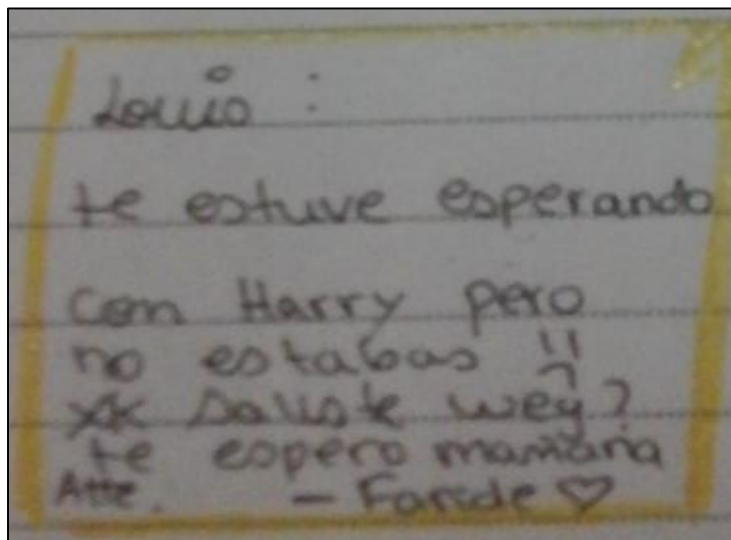 Louis :
te estuve esperando
con Harry pero
no estabas !!
xk saliste wey?
te espero mañana
Atte. - Faride ♡